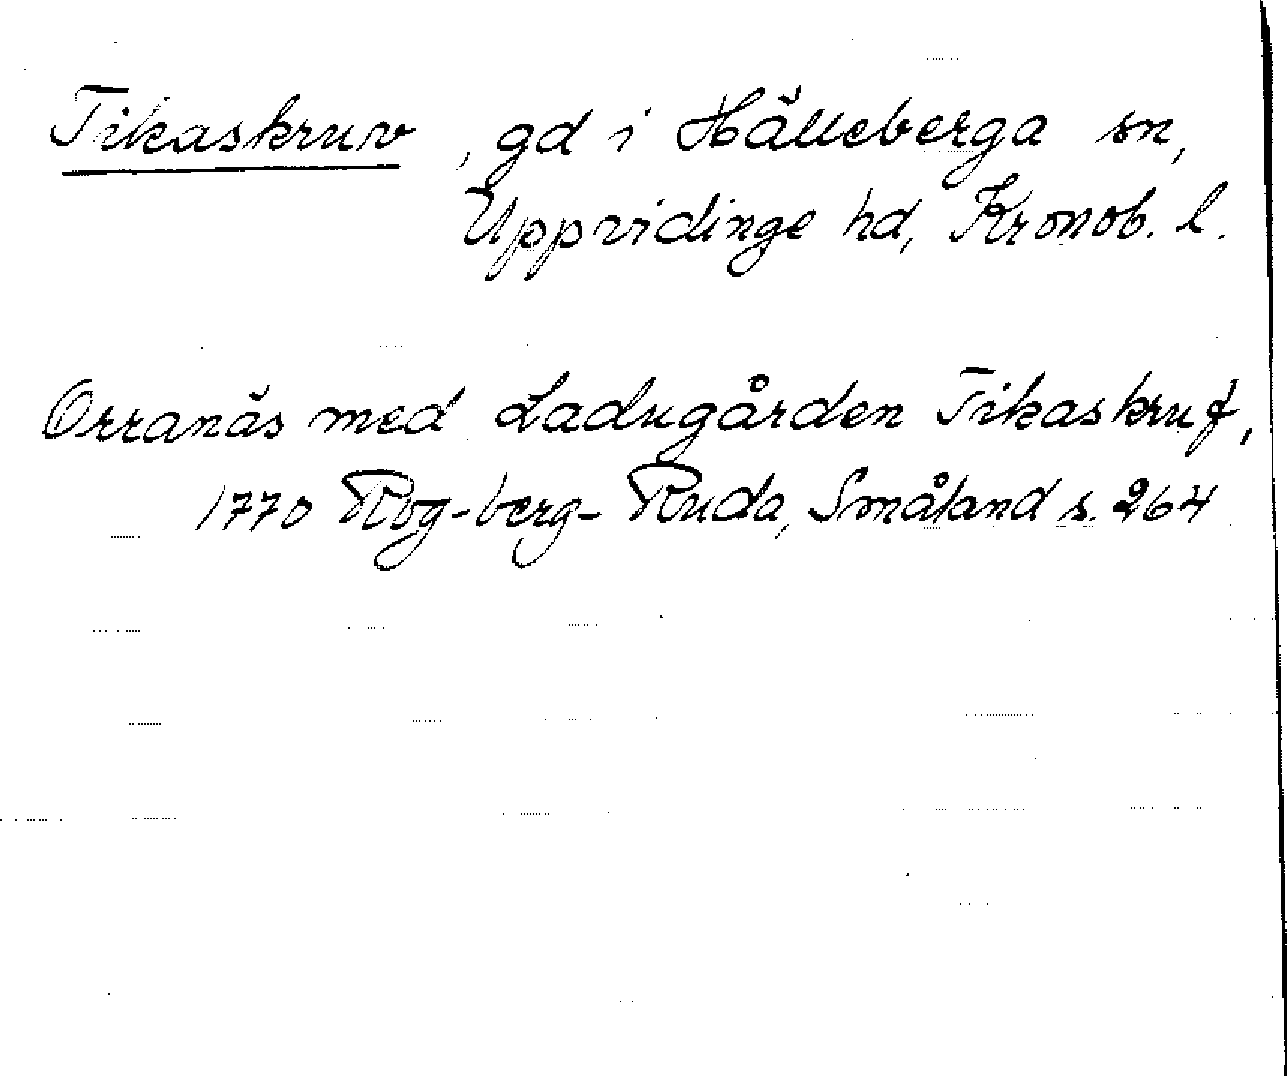 Tikaskruv, gd i Hälleberga sn,
Uppvidinge hd, Kronob. l.
Orranäs med Ladugården Tikaskruf,
1770 Rog-berg-Ruda, Småland s. 264